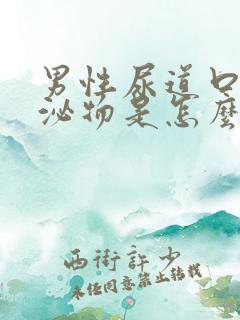 男性尿道口
泌物是怎麼
西街許少
未经同意禁止转载